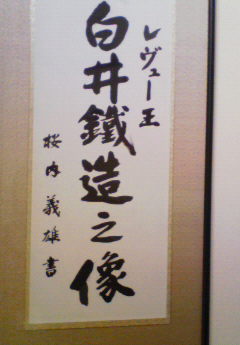 レヴュー王
白井鐵造之像
桜内義雄書